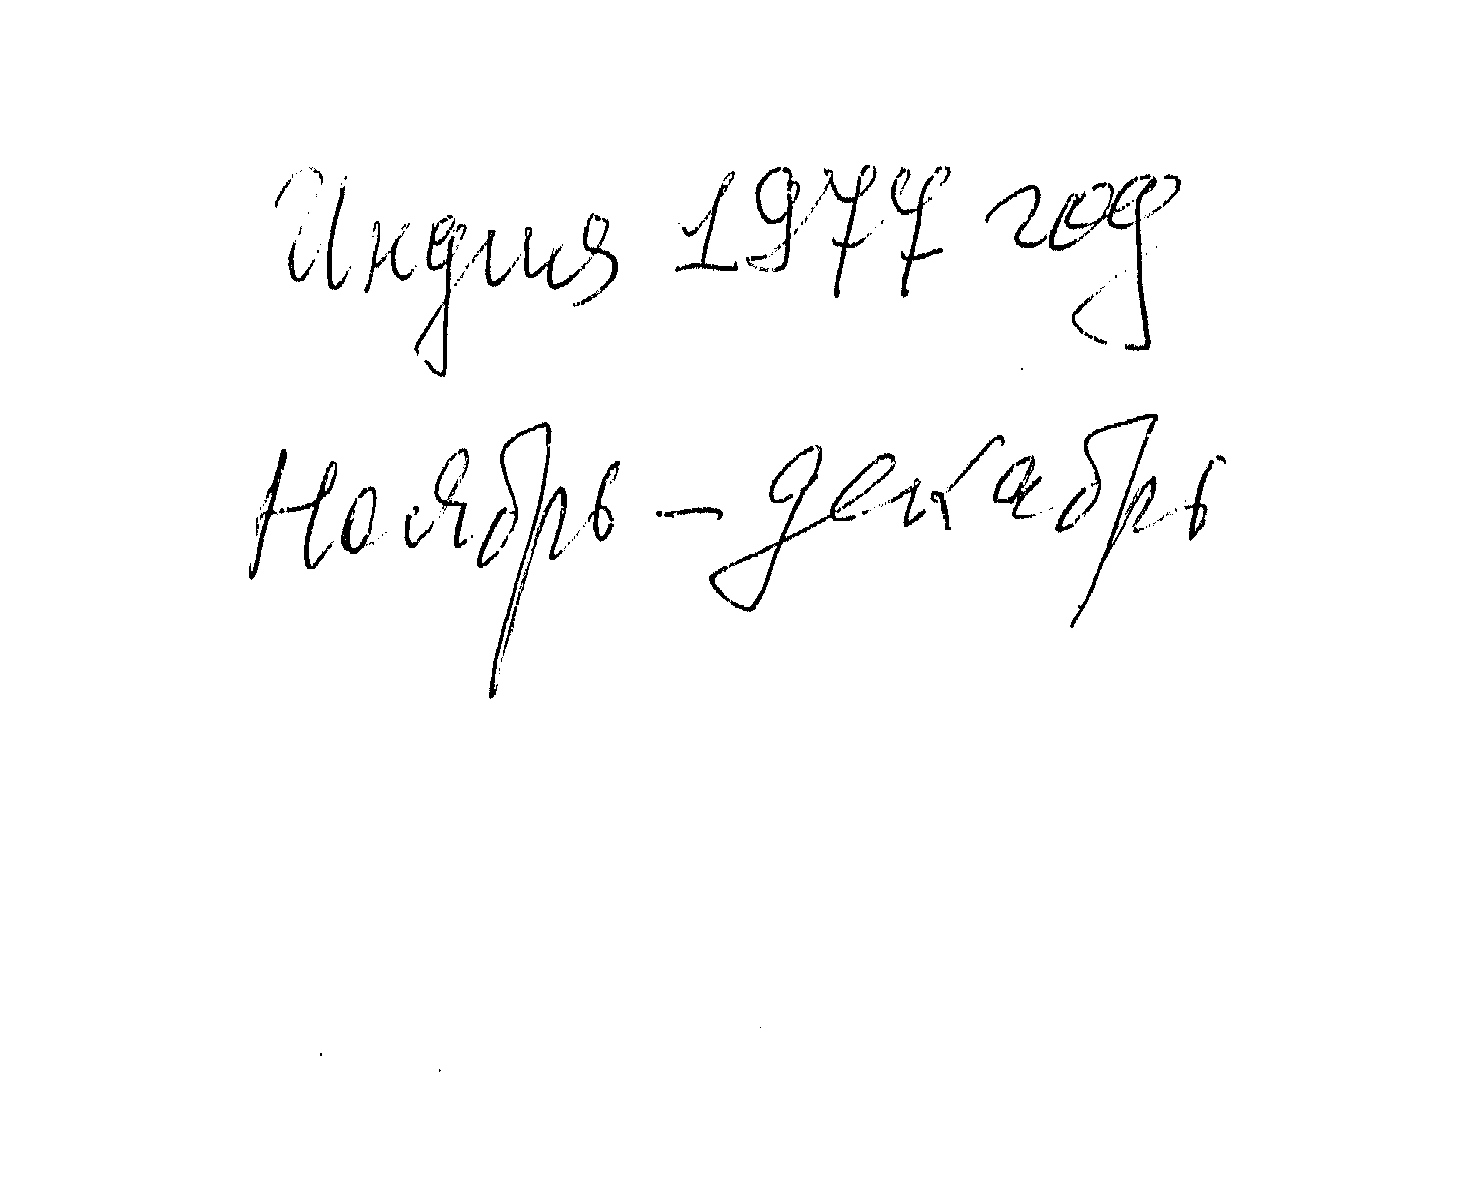 Индия 1977 год
Ноябрь - декабрь